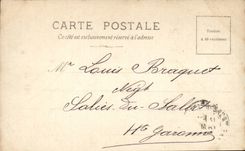 CARTE POSTALE
Ce côté est exclusivement réservé à l'adresse
Mr Louis Braquet
Négt
Salies-du-Salat
Hte Garonne